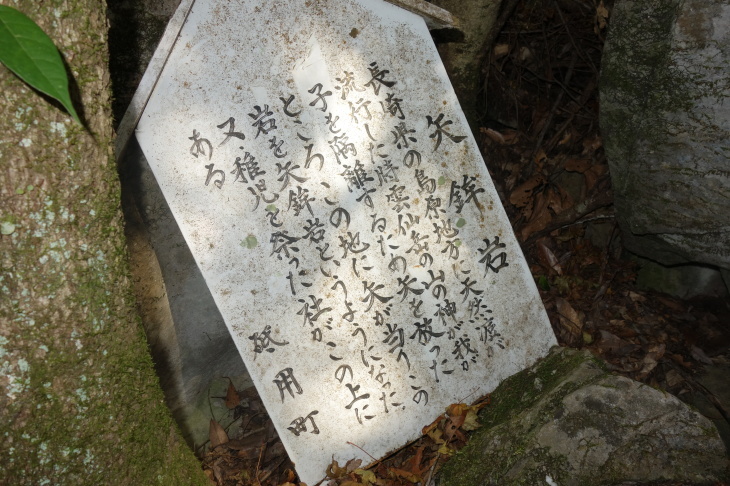 矢鉾岩
長崎県の島原地方に天然痘が
流行した時雲仙岳の山の神が我が
子を隔離するため矢を放った
ところこの地に矢が当りこの
岩を矢鉾岩というようになった
又稚児を祭った社がこの上に
ある
砥用町